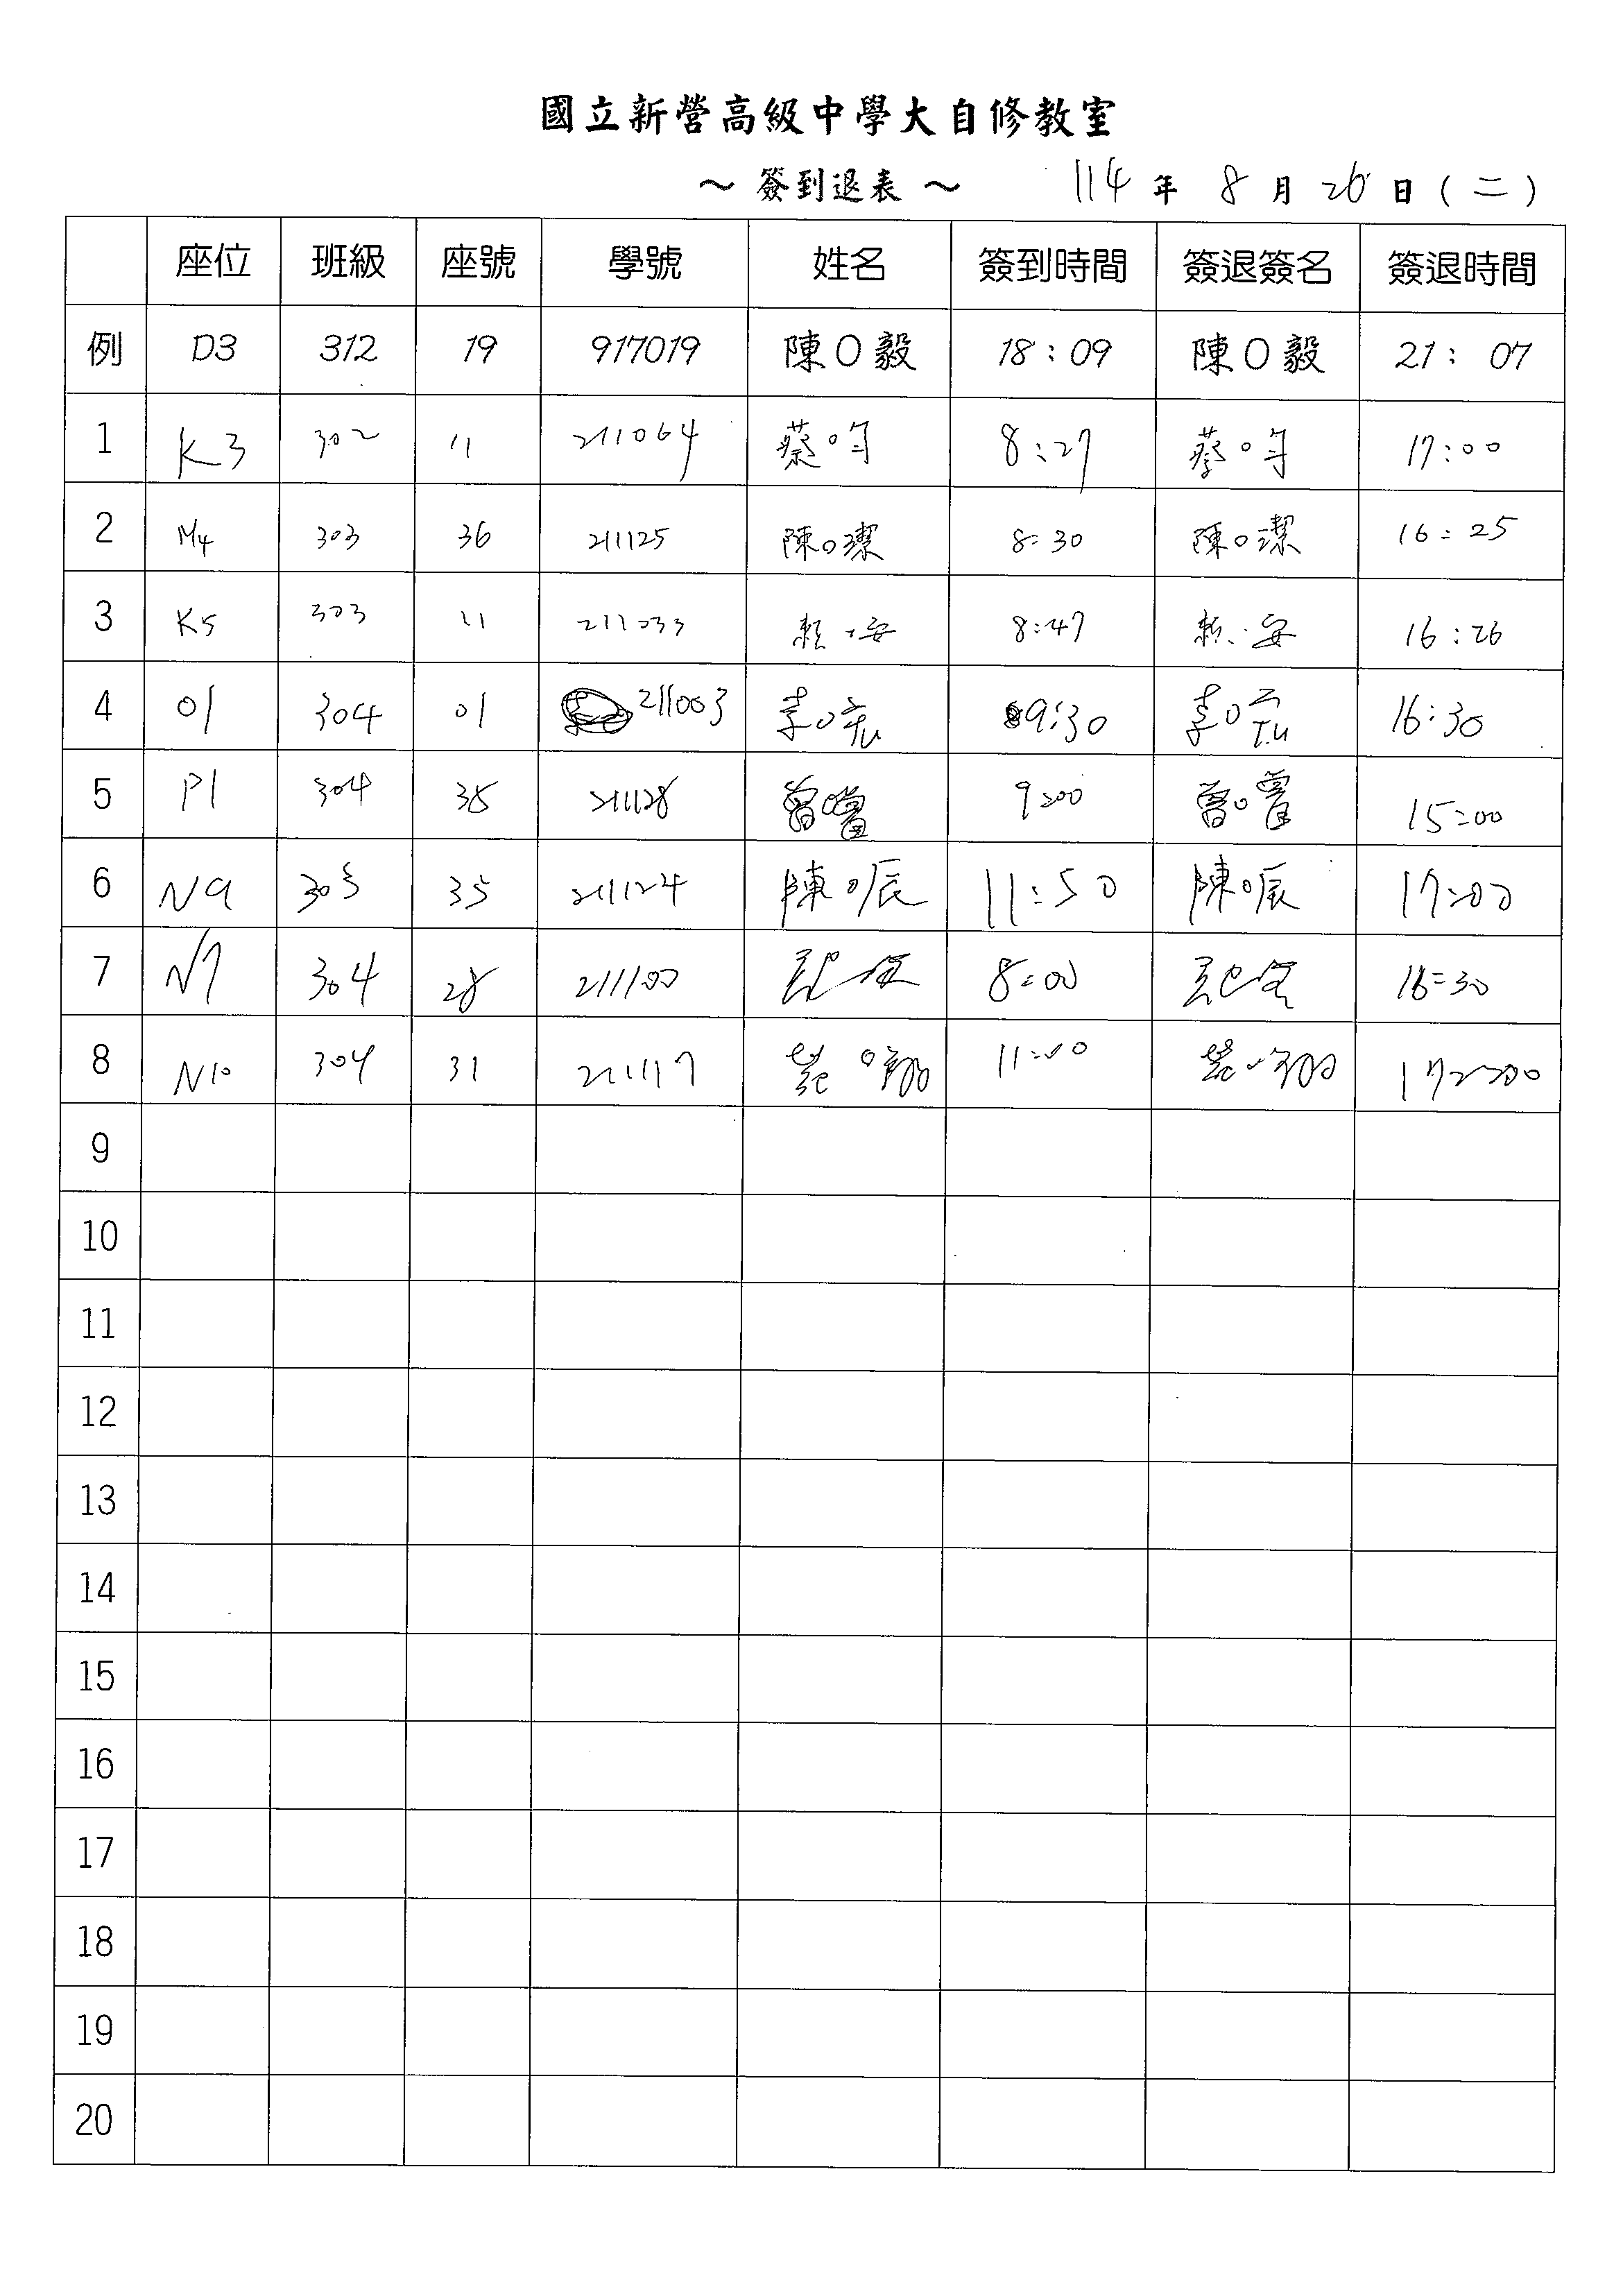 國立新營高級中學大自修教室
~ 簽到退表 ~ 114 年 8 月 26 日 ( 二 )
座位 班級 座號 學號 姓名 簽到時間 簽退簽名 簽退時間
例 D3 312 19 917019 陳O毅 18:09 陳O毅 21:07
1 K3 302 11 211064 蔡O 8:27 蔡O 17:00
2 M4 303 36 211125 陳O潔 8:30 陳O潔 16:25
3 K5 303 11 211033 賴 安 8:47 賴 安 16:26
4 O1 304 01 211003 李O 9:30 李O 16:30
5 P1 304 211128 曾O 9:00 曾O 15:00
6 N9 303 35 211124 陳O辰 11:50 陳O辰 17:00
7 N7 304 28 211100 8:00 16:30
8 N10 304 31 211117 O翔 11:00 翔 17:00
9
10
11
12
13
14
15
16
17
18
19
20